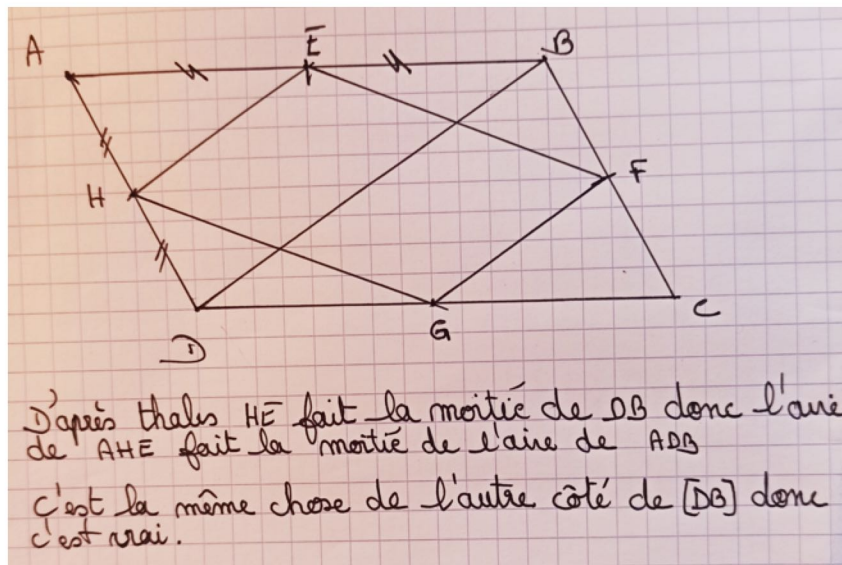 A
E
B
H
F
D
G
C
D'après thales HE fait la moitié de DB donc l'aire
de AHE fait la moitié de l'aire de ADB
C'est la même chose de l'autre côté de [DB] donc
c'est vrai.